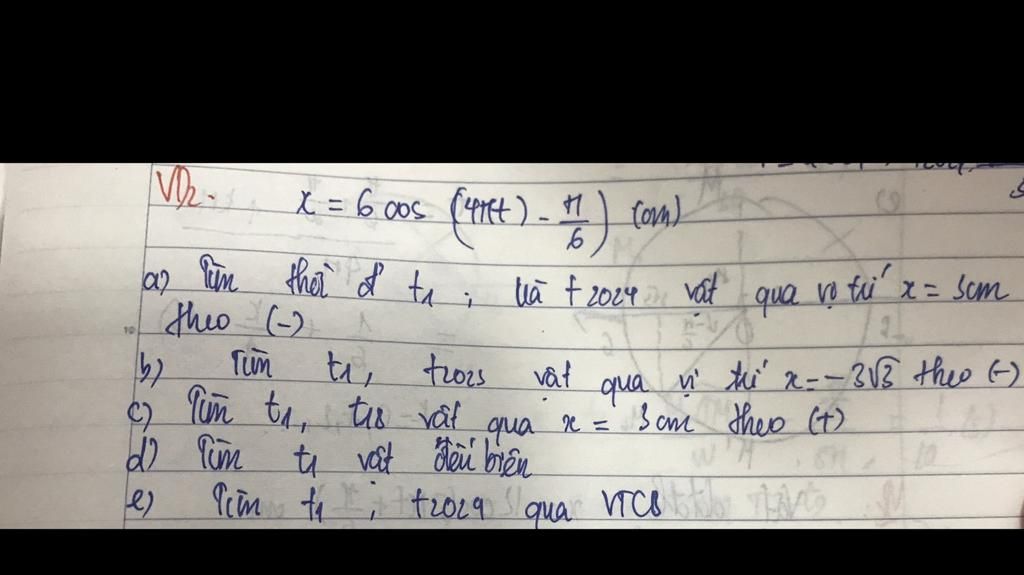 VD2. x = 6 cos (4πt) - π/6) (cm)
a) Tìm thời đ' t1 ; và t2024 vật qua vị trí x = 3cm
theo (-)
b) Tìm t1, t2025 vật qua vị trí x = -3√3 theo (-)
c) Tìm t1, t18 vật qua x = 3cm theo (+)
d) Tìm t1 vật đến biên
e) Tìm t1 ; t2029 qua VTCB